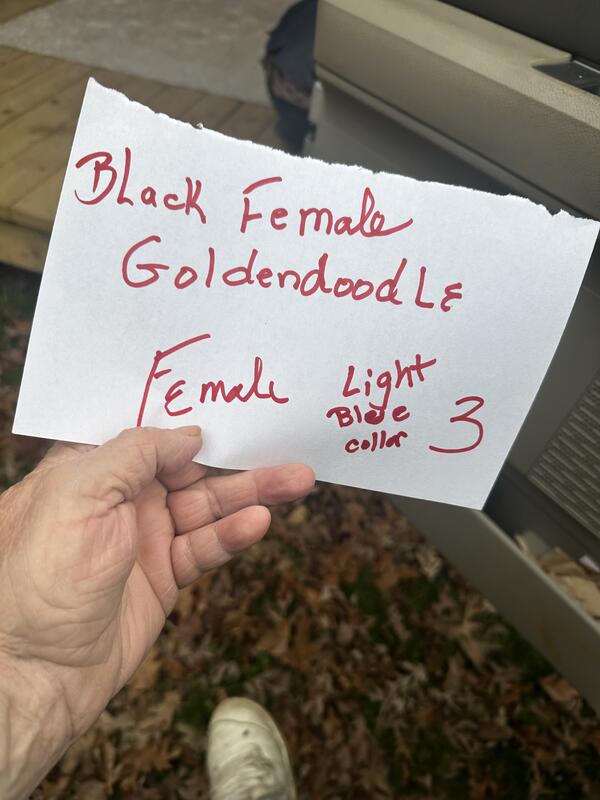 Black Female
Goldendoodle
Female Light
Blue
collar 3